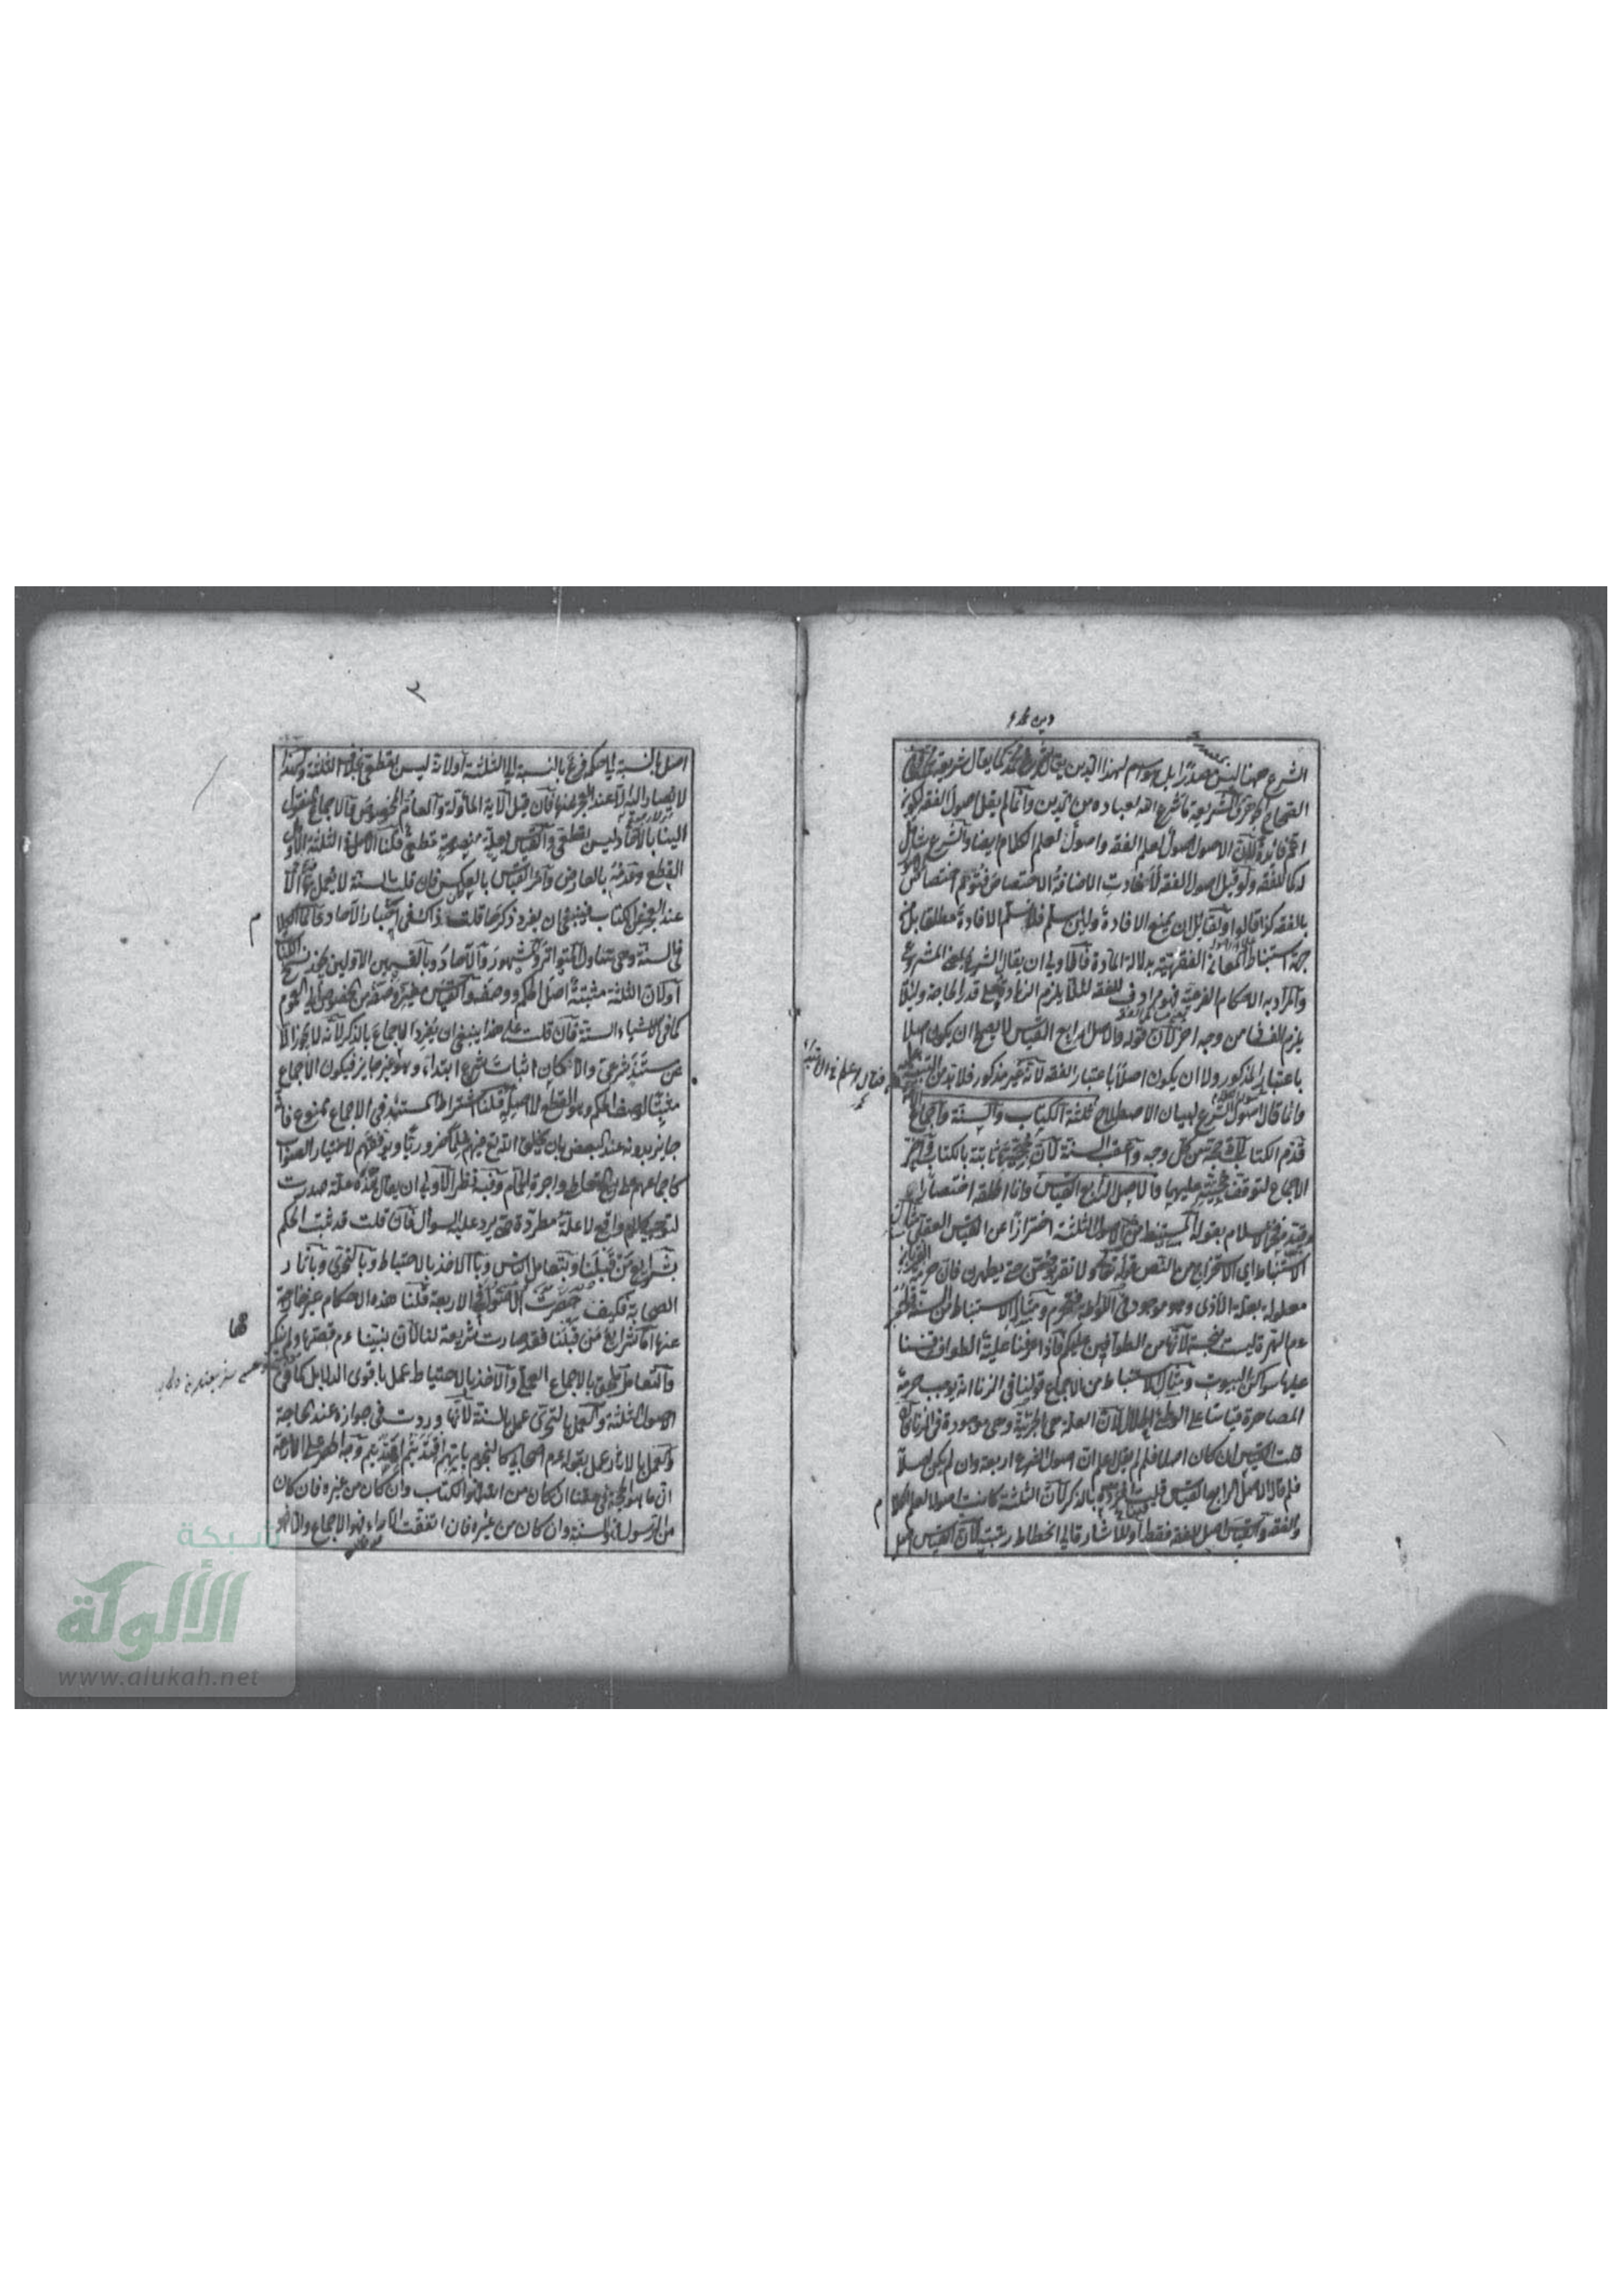 دين محمد
الشرع ههنا ليس مصدرا بل هو اسم لهذا الدين يقال شرع محمد كما يقال شريعة محمد وفي
الصحاح الشريعة ما شرع الله لعباده من الدين وانما لم يقل اصول الفقه لكونه
اعم فائدة لان الاصول اصول لعلم الفقه واصول لعلم الكلام ايضا والشرع شامل
لهما كالفقه ولو قيل اصول الفقه لافادت الاضافة الاختصاص فتوهم اختصاص
بالفقه كذا قالوا ولقائل ان يمنع الافادة ولئن سلم فلا نسلم الافادة مطلقا بل من
جهة استنباط المعاني الفقهية بدلالة المادة فالاولى ان يقال الشرع بمعنى المشروع
والمراد به الاحكام الفرعية فهو مرادف للفقه لئلا يلزم الزيادة على قدر الحاجة ولئلا
يلزم الفساد من وجه اخر لان قوله والاصل الرابع القياس لا يصح ان يكون اصلا
باعتبار المذكور ولا ان يكون اصلا باعتبار الفقه لانه غير مذكور فلا بد من
وانما قال اصول الشرع لبيان الاصطلاح ثلثة الكتاب والسنة واجماع
قدم الكتاب لانه حجة من كل وجه واعقب السنة لان حجيتها ثابتة بالكتاب واخر
الاجماع لتوقف حجيته عليهما والاصل الرابع القياس وانما اطلقه اختصارا
وقيده فخر الاسلام بقوله المستنبط من الاصول الثلثة احترازا عن القياس العقلي مثال
الاستنباط اي الاستخراج من النص قوله تعالى ولا تقربوهن حتى يطهرن فان حرمة القربان
معلولة بعلة الاذى وهو موجود في اللواطة فتحرم ومثال الاستنباط من السنة قوله
عم الهرة ليست نجسة لانها من الطوافين عليكم فاذا عرفنا علية الطواف قسنا
عليها سواكن البيوت ومثال الاستنباط من الاجماع قولنا في الزنا انه يوجب حرمة
المصاهرة قياسا على الوطئ الحلال لان العلة هي الجزئية وهي موجودة في الزنا فان
قلت القياس ان كان اصلا فلم لم يقل اعلم ان اصول الشرع اربعة وان لم يكن اصلا
فلم قال الاصل الرابع القياس قلت افرده بالذكر لان الثلثة كانت اصولا لعلم الكلام
والفقه والقياس اصل للفقه فقط او للاشارة الى انحطاط رتبته لان القياس اصل
٢
اصل بالنسبة الى حكمه فرع بالنسبة الى الثلثة او لانه ليس بقطعي بخلاف الثلثة ولهذا
لا يصار اليه الا عند العجز عنها فان قيل الآية المأولة والعام المخصوص والاجماع المنقول
الينا بالآحاد ليس بقطعي والقياس بعلة منصوصة قطعي قلنا الاصل في الثلثة الاول
القطع وعدمه بالعارض وامر القياس بالعكس فان قلت السنة لا يعمل بها الا
عند العجز عن الكتاب فينبغي ان يفرد ذكرها قلت ذاك في اخبار الآحاد
في السنة وهي تتناول المتواتر والمشهور والآحاد وبالقسمين الاولين يجوز نسخ الكتاب
او لان الثلثة مثبتة اصل الحكم ووصفه والقياس مغير وصفه من الخصوص الى العموم
كما في الاشياء الستة فان قلت على هذا ينبغي ان يفرد الاجماع بالذكر لانه لا يجوز الا
عن سند شرعي والا لكان اثبات شرع ابتداء وهو غير جايز فيكون الاجماع
مثبتا لوصف الحكم وهو القطع لا اصله قلنا اشتراط المستند في الاجماع ممنوع فانه
جايز بدونه عند البعض بان يخلق الله تع فيهم علما ضروريا ويوفقهم لاختيار الصواب
كاجماعهم على بيع التعاطي واجرة الحمام وفيه نظر الاولى ان يقال هذه علة صدرت
لتوجيه كلام واقع لا علة مطردة حتى يرد عليه السؤال فان قلت قد ثبت الحكم
بشرايع من قبلنا وبتعامل الناس وبالاخذ بالاحتياط وبالتحري وبآثار
الصحابة فكيف حصرت الاصول في الاربعة قلنا هذه الاحكام غير خارجة
عنها اما شرايع من قبلنا فقد صارت شريعة لنا لان نبينا عم قصها ولم ينكر
والتعامل ملحق بالاجماع العملي والاخذ بالاحتياط عمل باقوى الدلايل كما في
الاصول الثلثة والعمل بالتحري عمل بالسنة لانها وردت في جوازه عند الحاجة
والعمل بالآثار عمل بقوله عم اصحابي كالنجوم بايهم اقتديتم اهتديتم ووجه الحصر على الاربعة
ان ما هو الحجة في حقنا ان كان من الله فهو الكتاب وان كان من غيره فان كان
من الرسول فهو السنة وان كان من غيره فان اتفقت الآراء فهو الاجماع والا فهو
شبكة
الألوكة
www.alukah.net